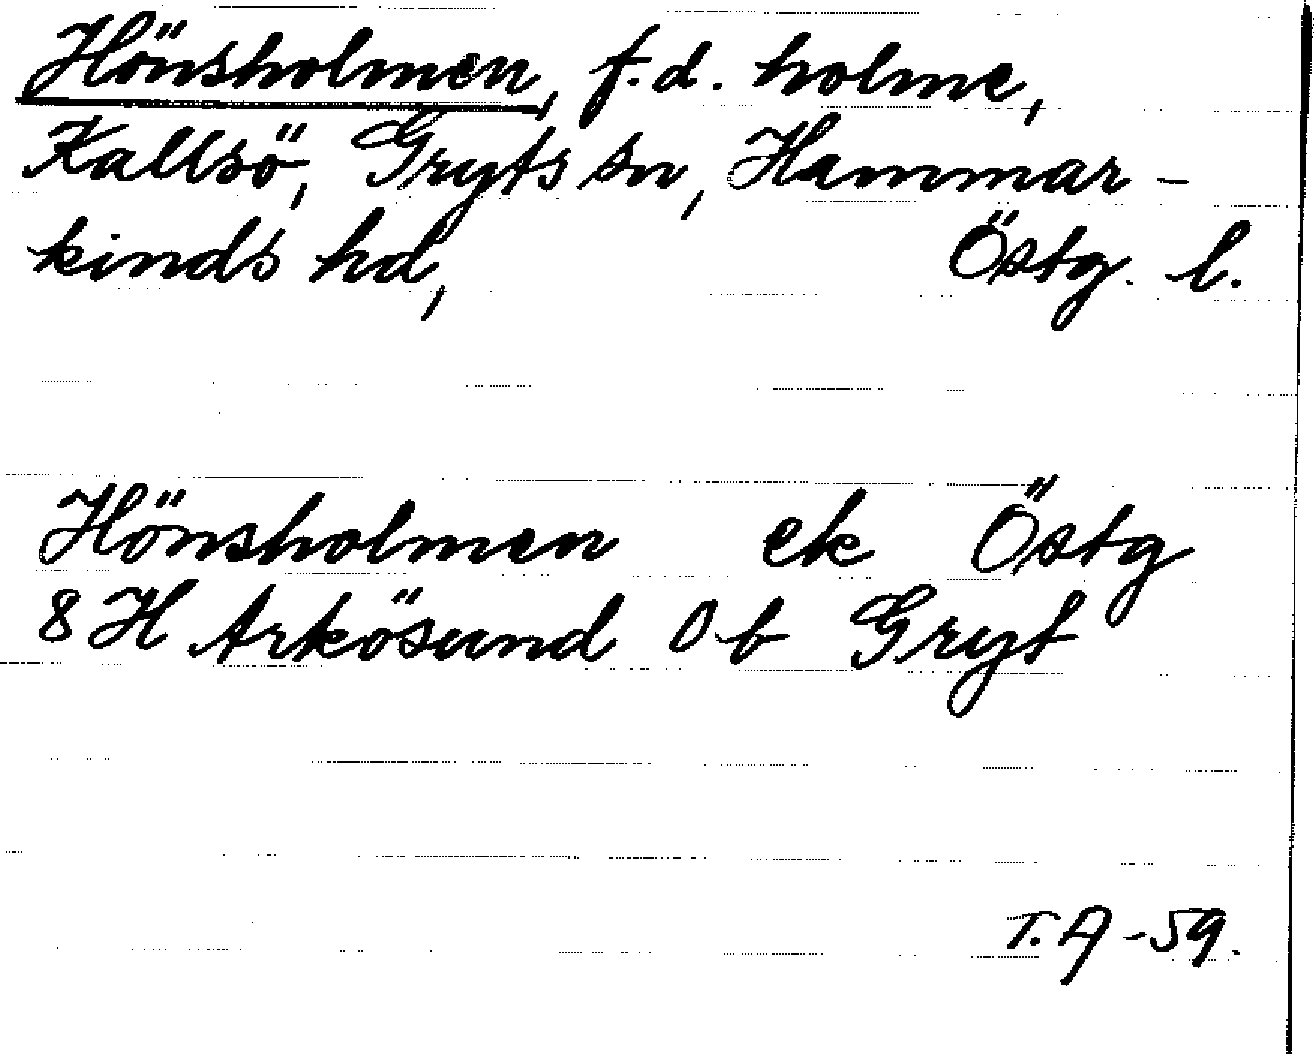 Hönsholmen, f.d. holme,
Kallsö, Gryts sn, Hammar-
kinds hd, Östg. l.
Hönsholmen ek Östg
8 H Arkösund 0 b Gryt
T. A -59.